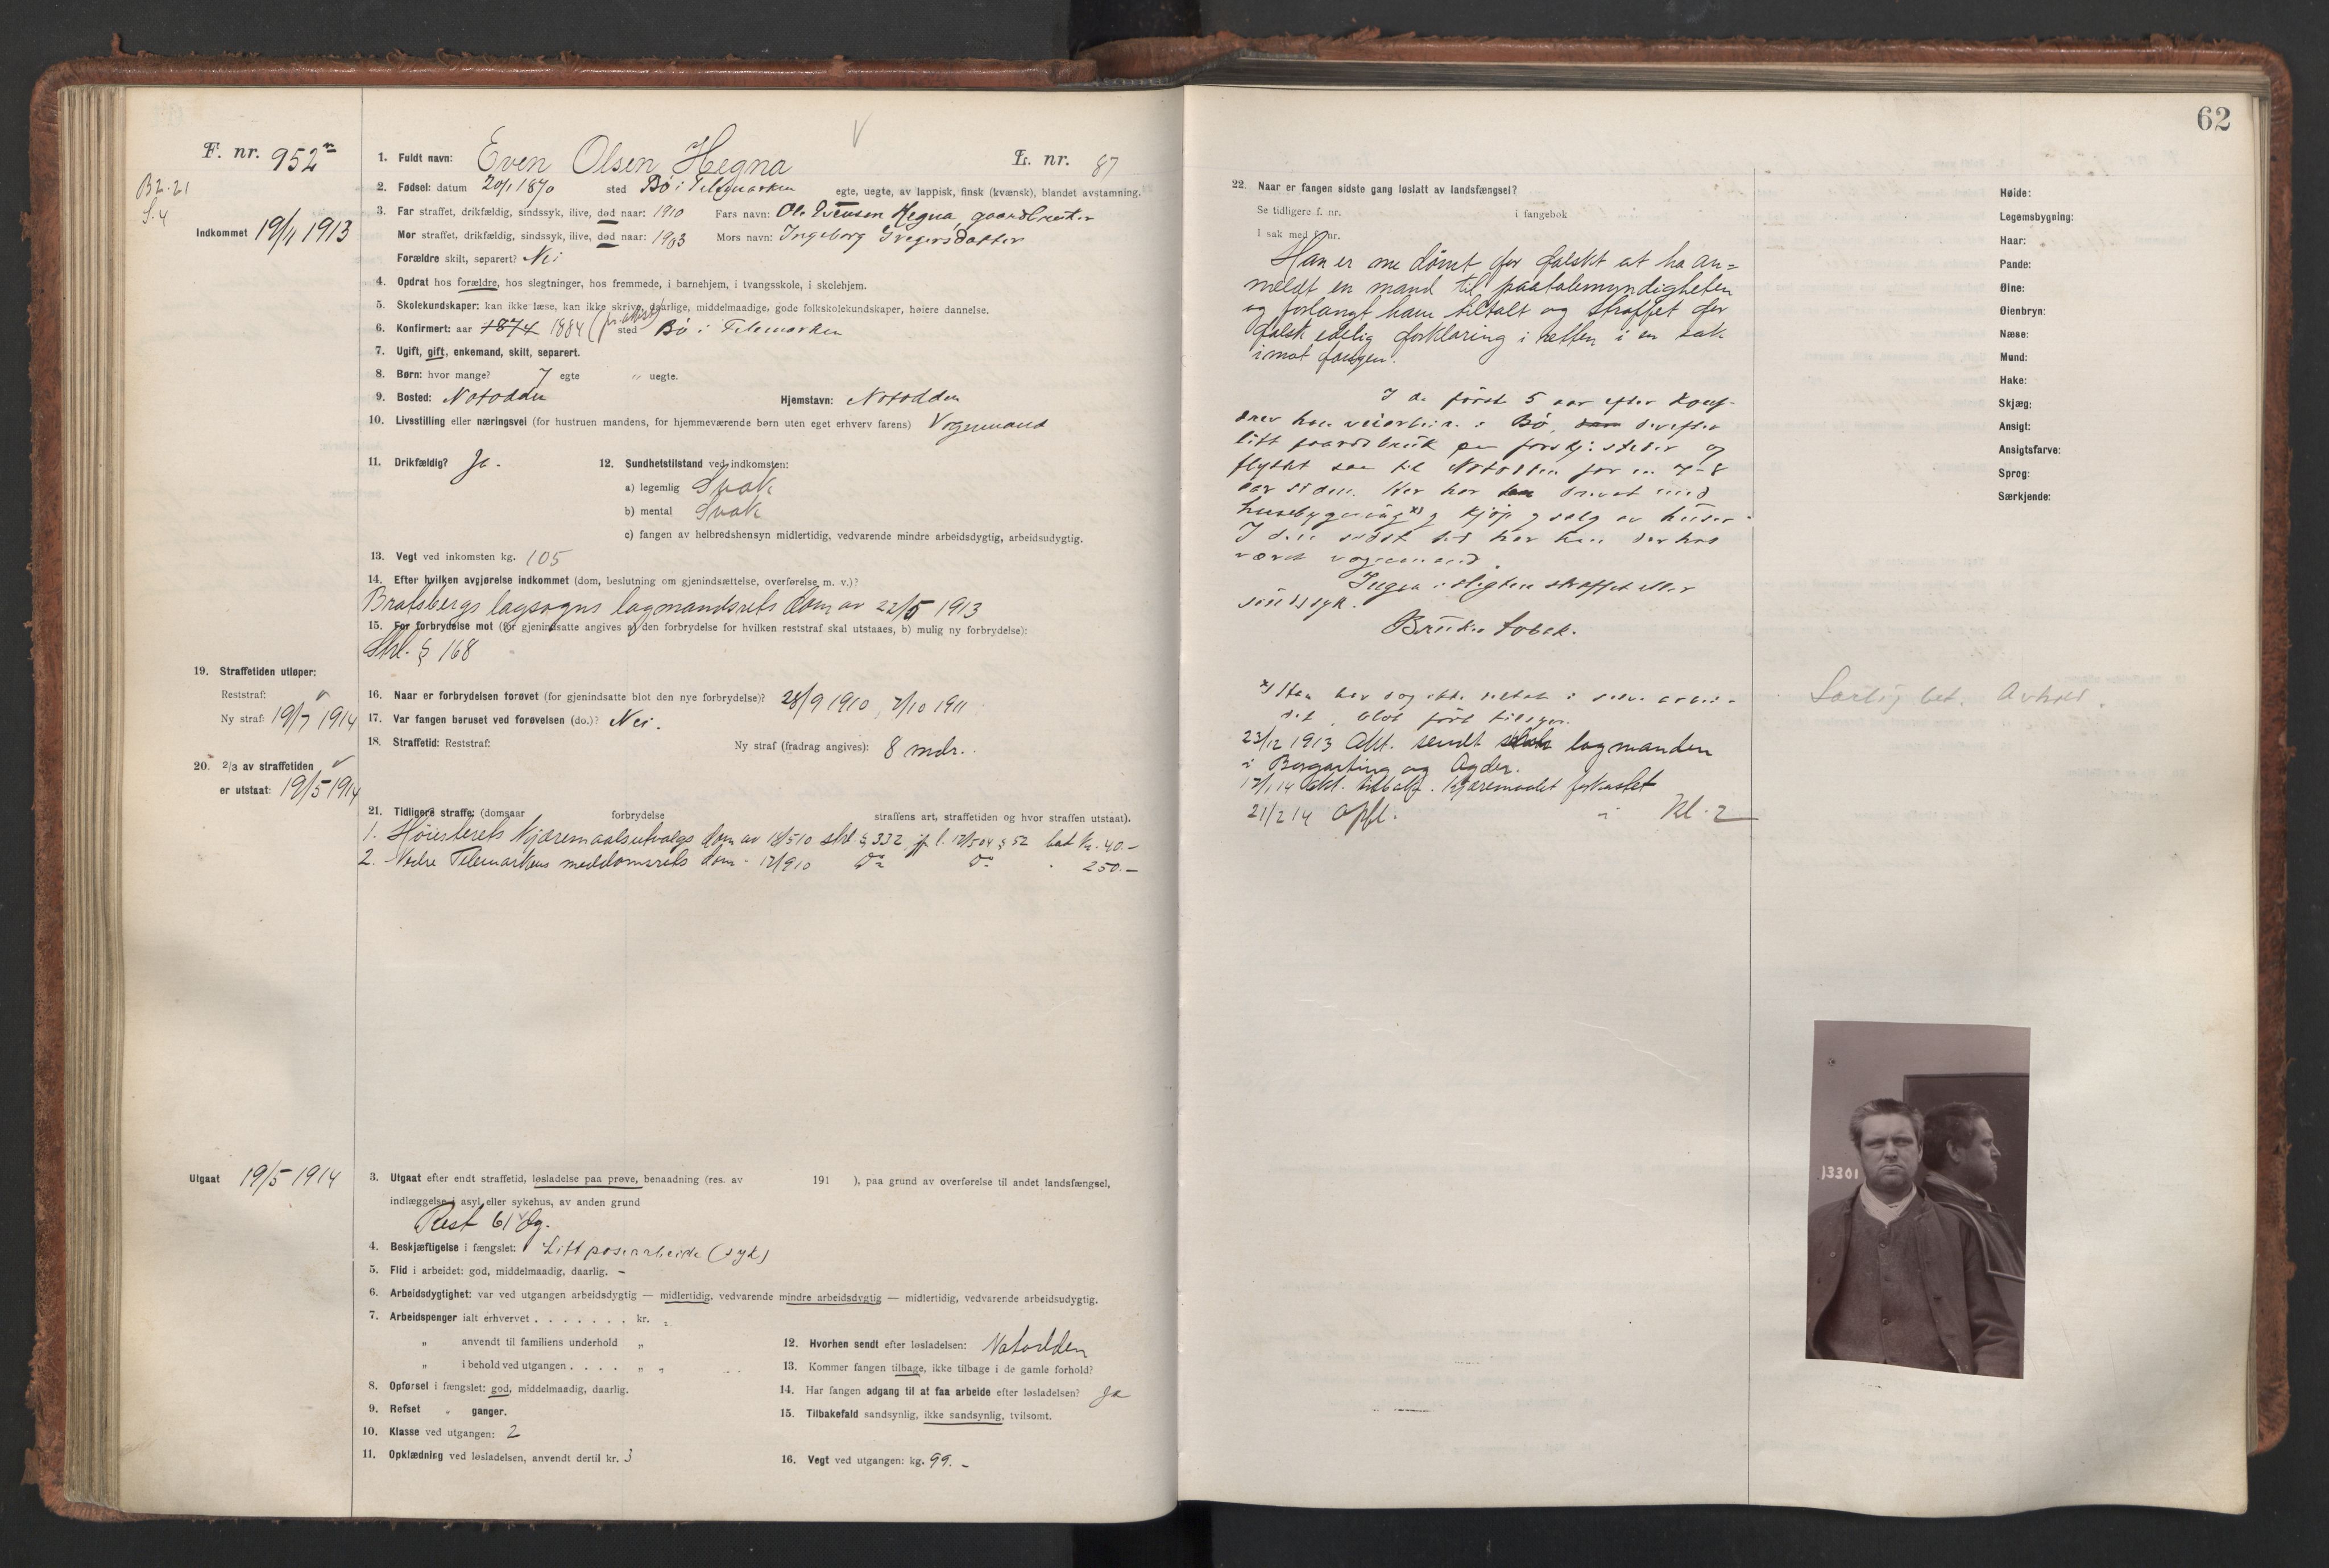 62
F. nr. 952
B2.21
S. 4
Indkommet 19/11 1913
L. nr. 87
1. Fuldt navn: Even Olsen Hegna
2. Fødsel: datum 20/1 1870 sted Bø i Telemarken egte, uegte, av lappisk, finsk (kvænsk), blandet avstamning.
3. Far straffet, drikfældig, sindssyk, ilive, død naar: 1910 Fars navn: Ole Evensen Hegna, gaardbruker
Mor straffet, drikfældig, sindssyk, ilive, død naar: 1903 Mors navn: Ingeborg Gregersdatter
Forældre skilt, separert? Nei
4. Opdrat hos forældre, hos slegtninger, hos fremmede, i barnehjem, i tvangsskole, i skolehjem.
5. Skolekundskaper: kan ikke læse, kan ikke skrive, daarlige, middelmaadige, gode folkskolekundskaper, høiere dannelse.
6. Konfirmert: aar 1874 1884 (pr. attest) sted Bø i Telemarken
7. Ugift, gift, enkemand, skilt, separert.
8. Børn: hvor mange? 7 egte " uegte.
9. Bosted: Notodden Hjemstavn: Notodden
10. Livsstilling eller næringsvei (for hustruen mandens, for hjemmeværende børn uten eget erhverv farens) Vognmand
11. Drikfældig? Ja. 12. Sundhetstilstand ved indkomsten:
a) legemlig Svak
b) mental Svak
c) fangen av helbredshensyn midlertidig, vedvarende mindre arbeidsdygtig, arbeidsudygtig.
13. Vegt ved inkomsten kg. 105
14. Efter hvilken avgjørelse indkommet (dom, beslutning om gjenindsættelse, overførelse m. v.)?
Bratsbergs lagsogns lagmandsrets dom av 22/5 1913
15. For forbrydelse mot (for gjenindsatte angives a) den forbrydelse for hvilken reststraf skal utstaaes, b) mulig ny forbrydelse):
Strl. § 168
19. Straffetiden utløper:
Reststraf:
Ny straf: 19/7 1914
16. Naar er forbrydelsen forøvet (for gjenindsatte blot den nye forbrydelse)? 28/9 1910, 7/10 1911
17. Var fangen beruset ved forøvelsen (do.)? Nei.
18. Straffetid: Reststraf: Ny straf (fradrag angives): 8 mdr.
20. 2/3 av straffetiden
er utstaat: 19/5 1914
21. Tidligere straffe: (domsaar forbrydelse straffens art, straffetiden og hvor straffen utstaat).
1. Høiesterets Kjæremaalsutvalgs dom av 18/5 10 strl. § 332 jf. l. 17/5 04 § 52 bot kr. 40.-
2. Nedre Telemarkens meddomsrets dom - 17/9 10 Do Do 250.-
Utgaat 19/5 1914
3. Utgaat efter endt straffetid, løsladelse paa prøve, benaadning (res. av 191 ), paa grund av overførelse til andet landsfængsel,
indlæggelse i asyl eller sykehus, av anden grund
Rest 61 dg.
4. Beskjæftigelse i fængslet: Litt posearbeide (syk)
5. Flid i arbeidet: god, middelmaadig, daarlig. -
6. Arbeidsdygtighet: var ved utgangen arbeidsdygtig — midlertidig, vedvarende mindre arbeidsdygtig — midlertidig, vedvarende arbeidsudygtig.
7. Arbeidspenger ialt erhvervet . . . . . . . kr.
" anvendt til familiens underhold "
" i behold ved utgangen . . . . " "
8. Opførsel i fængslet: god, middelmaadig, daarlig.
9. Refset " ganger.
10. Klasse ved utgangen: 2
11. Opklædning ved løsladelsen, anvendt dertil kr. 3
12. Hvorhen sendt efter løsladelsen: Notodden
13. Kommer fangen tilbage, ikke tilbage i de gamle forhold?
14. Har fangen adgang til at faa arbeide efter løsladelsen? Ja
15. Tilbakefald sandsynlig, ikke sandsynlig, tvilsomt.
16. Vegt ved utgangen: kg. 99. -
22. Naar er fangen sidste gang løslatt av landsfængsel?
Se tidligere f. nr. i fangebok
I sak med f. nr.
Han er nu dømt for falskt at ha an=
meldt en mand til paatalemyndigheten
og forlangt ham tiltalt og straffet for
falsk edelig forklaring i retten i en sak
imot fangen.
I de første 5 aar efter konf.
drev han veiarbeide i Bø, derefter
litt gaardsbruk paa forskj. steder og
flyttet saa til Notodden for en 7-8
aar siden. Her har han drevet med
husebygning x) og kjøp og salg av huser.
I den sidste tid har han derhos
været vognmand.
Ingen i slegten straffet eller
sindssyk.
Bruker tobak.
x) Han har dog ikke deltat i selve arbei-
det, blot ført tilsyn.
23/12 1913 Akt. sendt lagmanden
i Borgarting og Agder.
17/1 14 Akt. tilbake. Kjæremaalet forkastet
21/2 14 Opfl. i Kl. 2
Høide:
Legemsbygning:
Haar:
Pande:
Øine:
Øienbryn:
Næse:
Mund:
Hake:
Skjæg:
Ansigt:
Ansigtsfarve:
Sprog:
Særkjende:
Særlig bet. Avhold.
13301